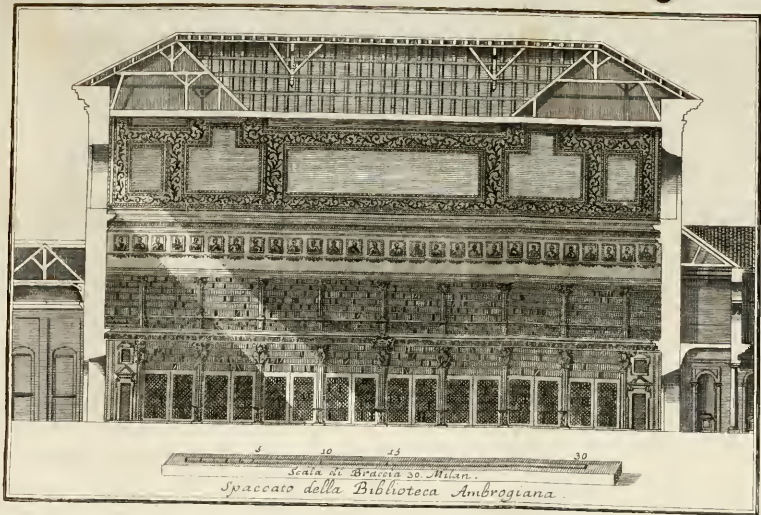 5 10 15 30
Scala di Braccia 30. Milan.
Spaccato della Biblioteca Ambrogiana.